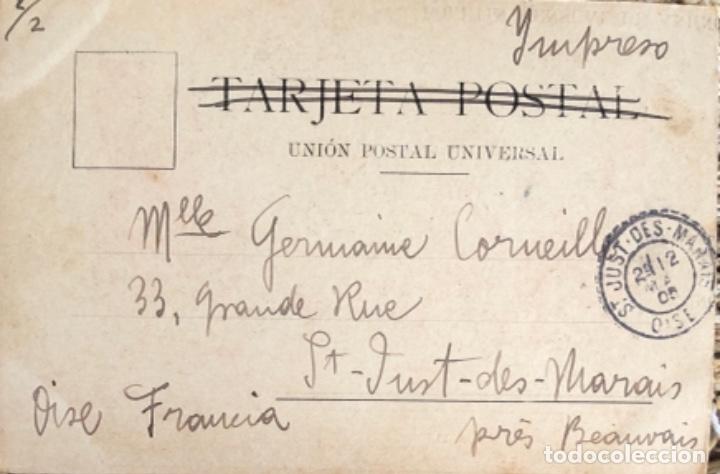 2/2
Impreso
TARJETA POSTAL
UNIÓN POSTAL UNIVERSAL
Mlle Germaine Corneille
33, Grande Rue
St-Just-des-Marais
Oise Francia
près Beauvais
ST JUST-DES-MARAIS
OISE
todocoleccion